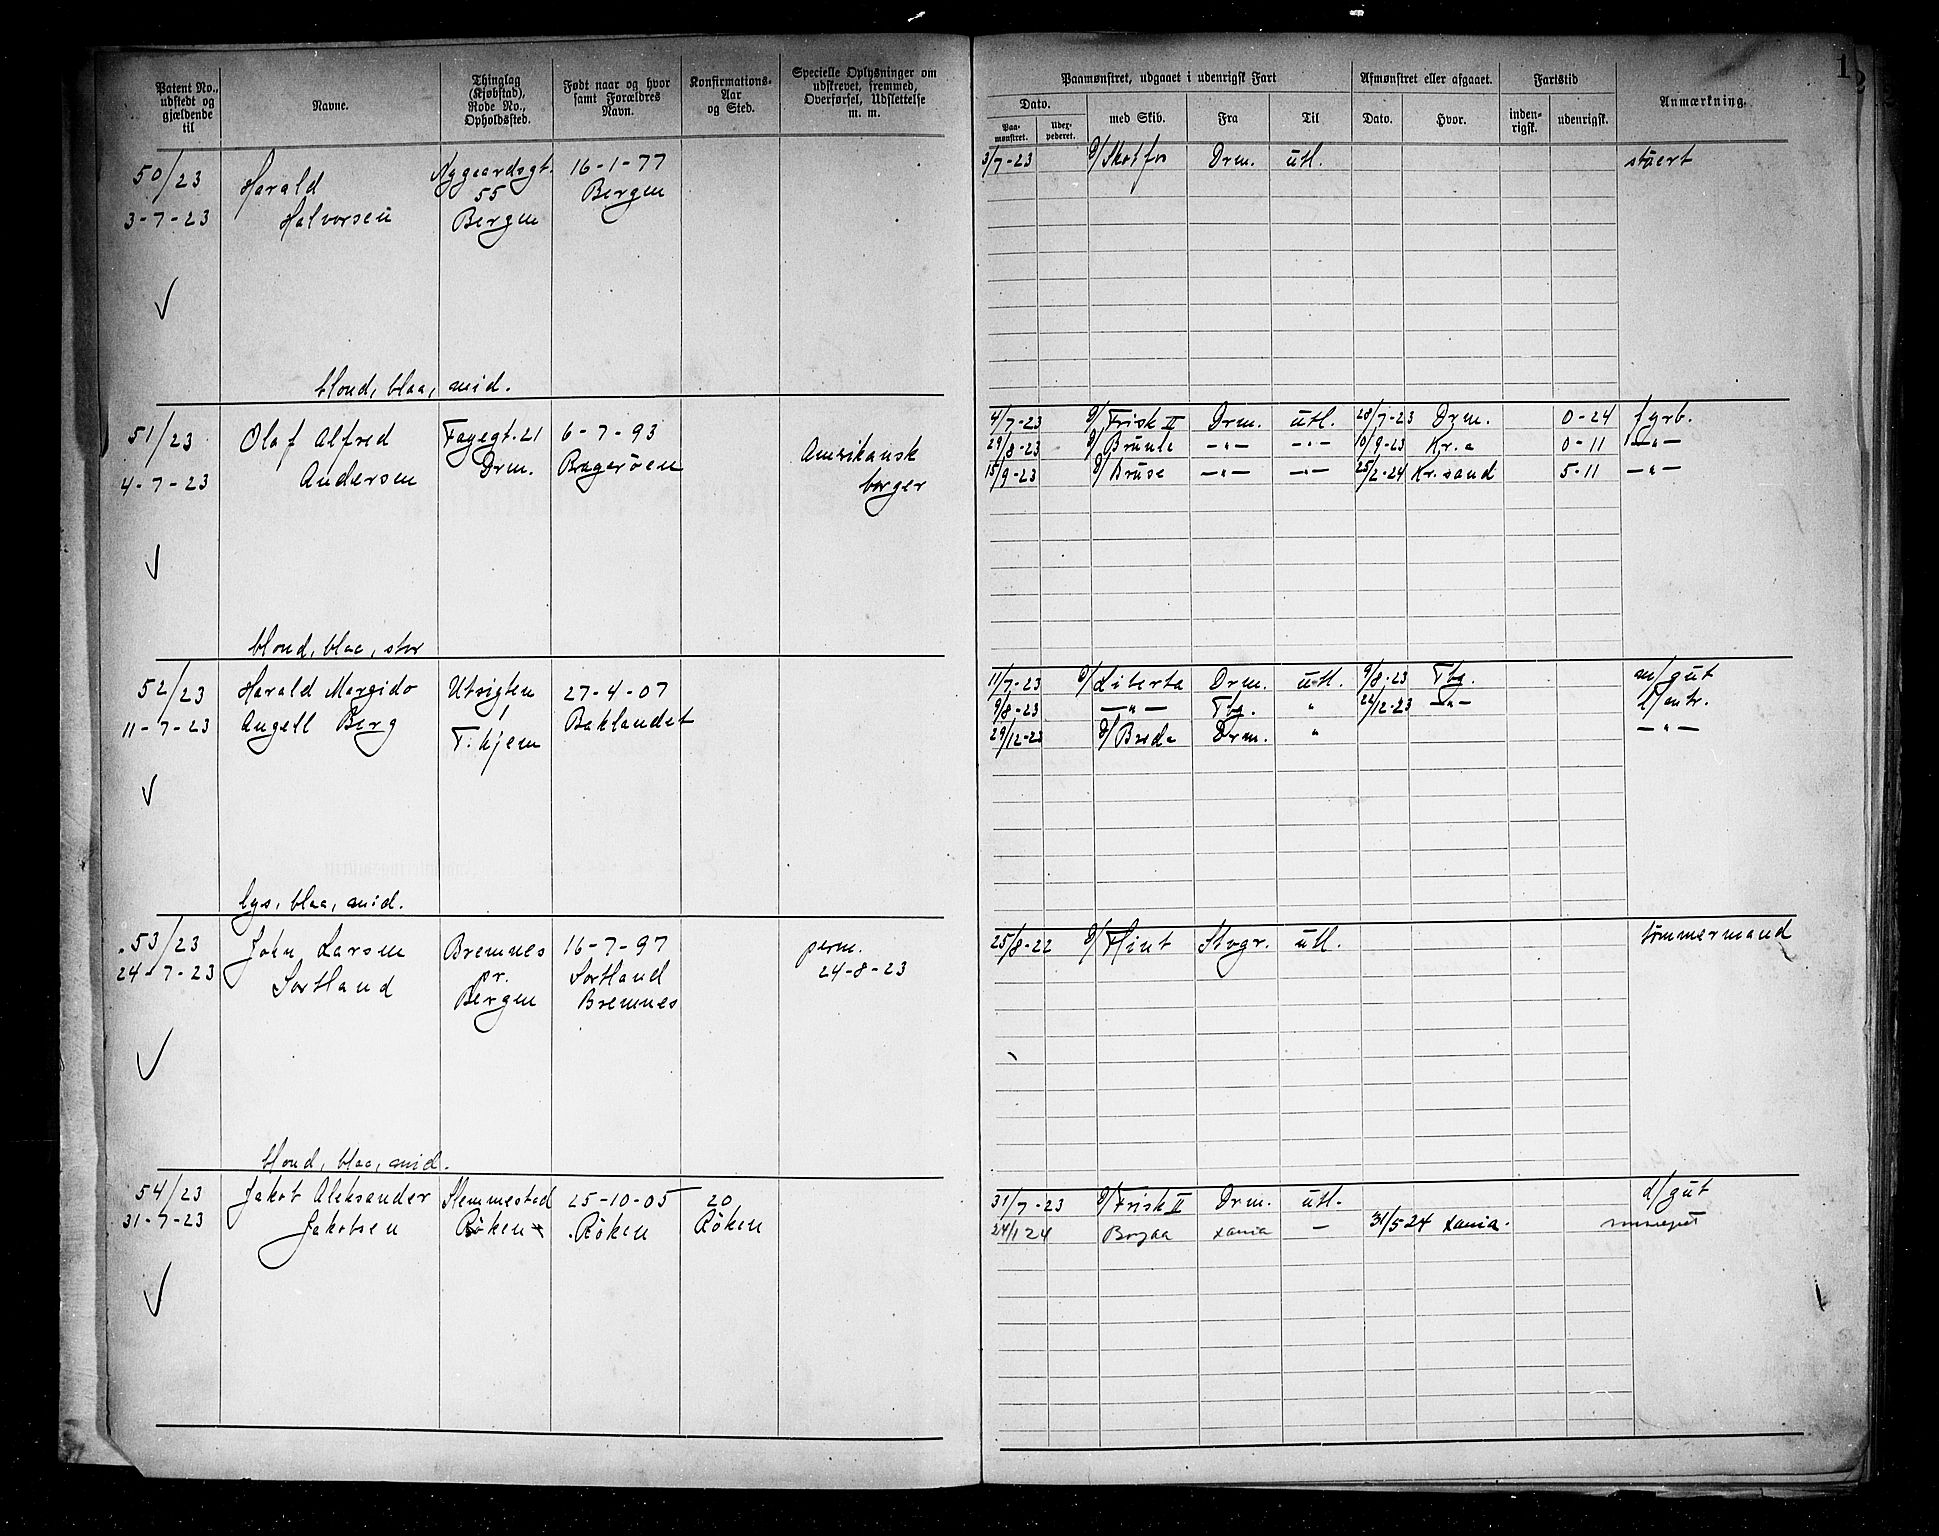 Patent No., udstedt og gjældende til
Navne.
Thinglag (Kjøbstad), Rode No., Opholdssted.
Født naar og hvor samt Forældres Navn.
Konfirmations- Aar og Sted.
Specielle Oplysninger om udskrevet, fremmed, Overførsel, Udslettelse m. m.
Paamønstret, udgaaet i udenrigsk Fart
Dato.
Paa- mønstret.
Udex- pederet.
med Skib.
Fra
Til
Afmønstret eller afgaaet.
Dato.
Hvor.
Fartstid
inden- rigsk.
udenrigsk.
Anmærkning.
1
2
50/23
3-7-23
Harald
Halvorsen
Nygaardsgt.
55
Bergen
16-1-77
Bergen
3/7-23 D/Skotfos Drm. utl. stuert
blond, blaa, mid.
51/23
4-7-23
Olaf Alfred
Andersen
Fayegt. 21
Drm.
6-7-93
Bragerøen
Amerikansk
borger
4/7-23 D/Frisk II Drm. utl. 28/7-23 Drm. 0-24 fyrb.
29/8-23 D/Brunla -"- -"- 10/9-23 Kr.a 0-11 -"-
15/9-23 D/Bruse -"- -"- 25/2-24 Kr.sand 5-11 -"-
blond, blaa, stor
52/23
11-7-23
Harald Margido
Angell Berg
Utsigten
1
T.hjem
27-4-07
Baklandet
11/7-23 D/Liberta Drm. utl. 9/8-23 Tbg. m/gut
9/8-23 -"- Tbg. " 22/12-23 -"- l/mtr.
29/12-23 D/Breda Drm. " -"-
lys, blaa, mid.
53/23
24-7-23
John Larsen
Sortland
Bremnes
pr.
Bergen
16-7-97
Sortland
Bremnes
perm.
24-8-23
25/8-22 D/Flint Stvgr. utl. tømmermand
blond, blaa, mid.
54/23
31-7-23
Jakob Aleksander
Jakobsen
Slemmestad
Røken
25-10-05
Røken
20
Røken
31/7-23 D/Frisk II Drm. utl. d/gut
24/1 24 xania — 31/5 24 xania.